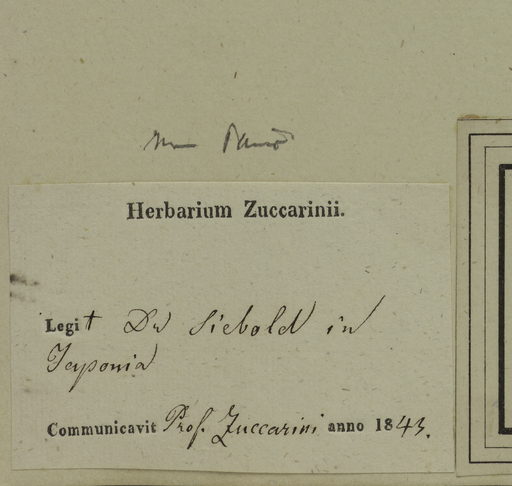 Herbarium Zuccarinii.
Legit Dr Siebold in
Japonia
Communicavit Prof. Zuccarini anno 1843.